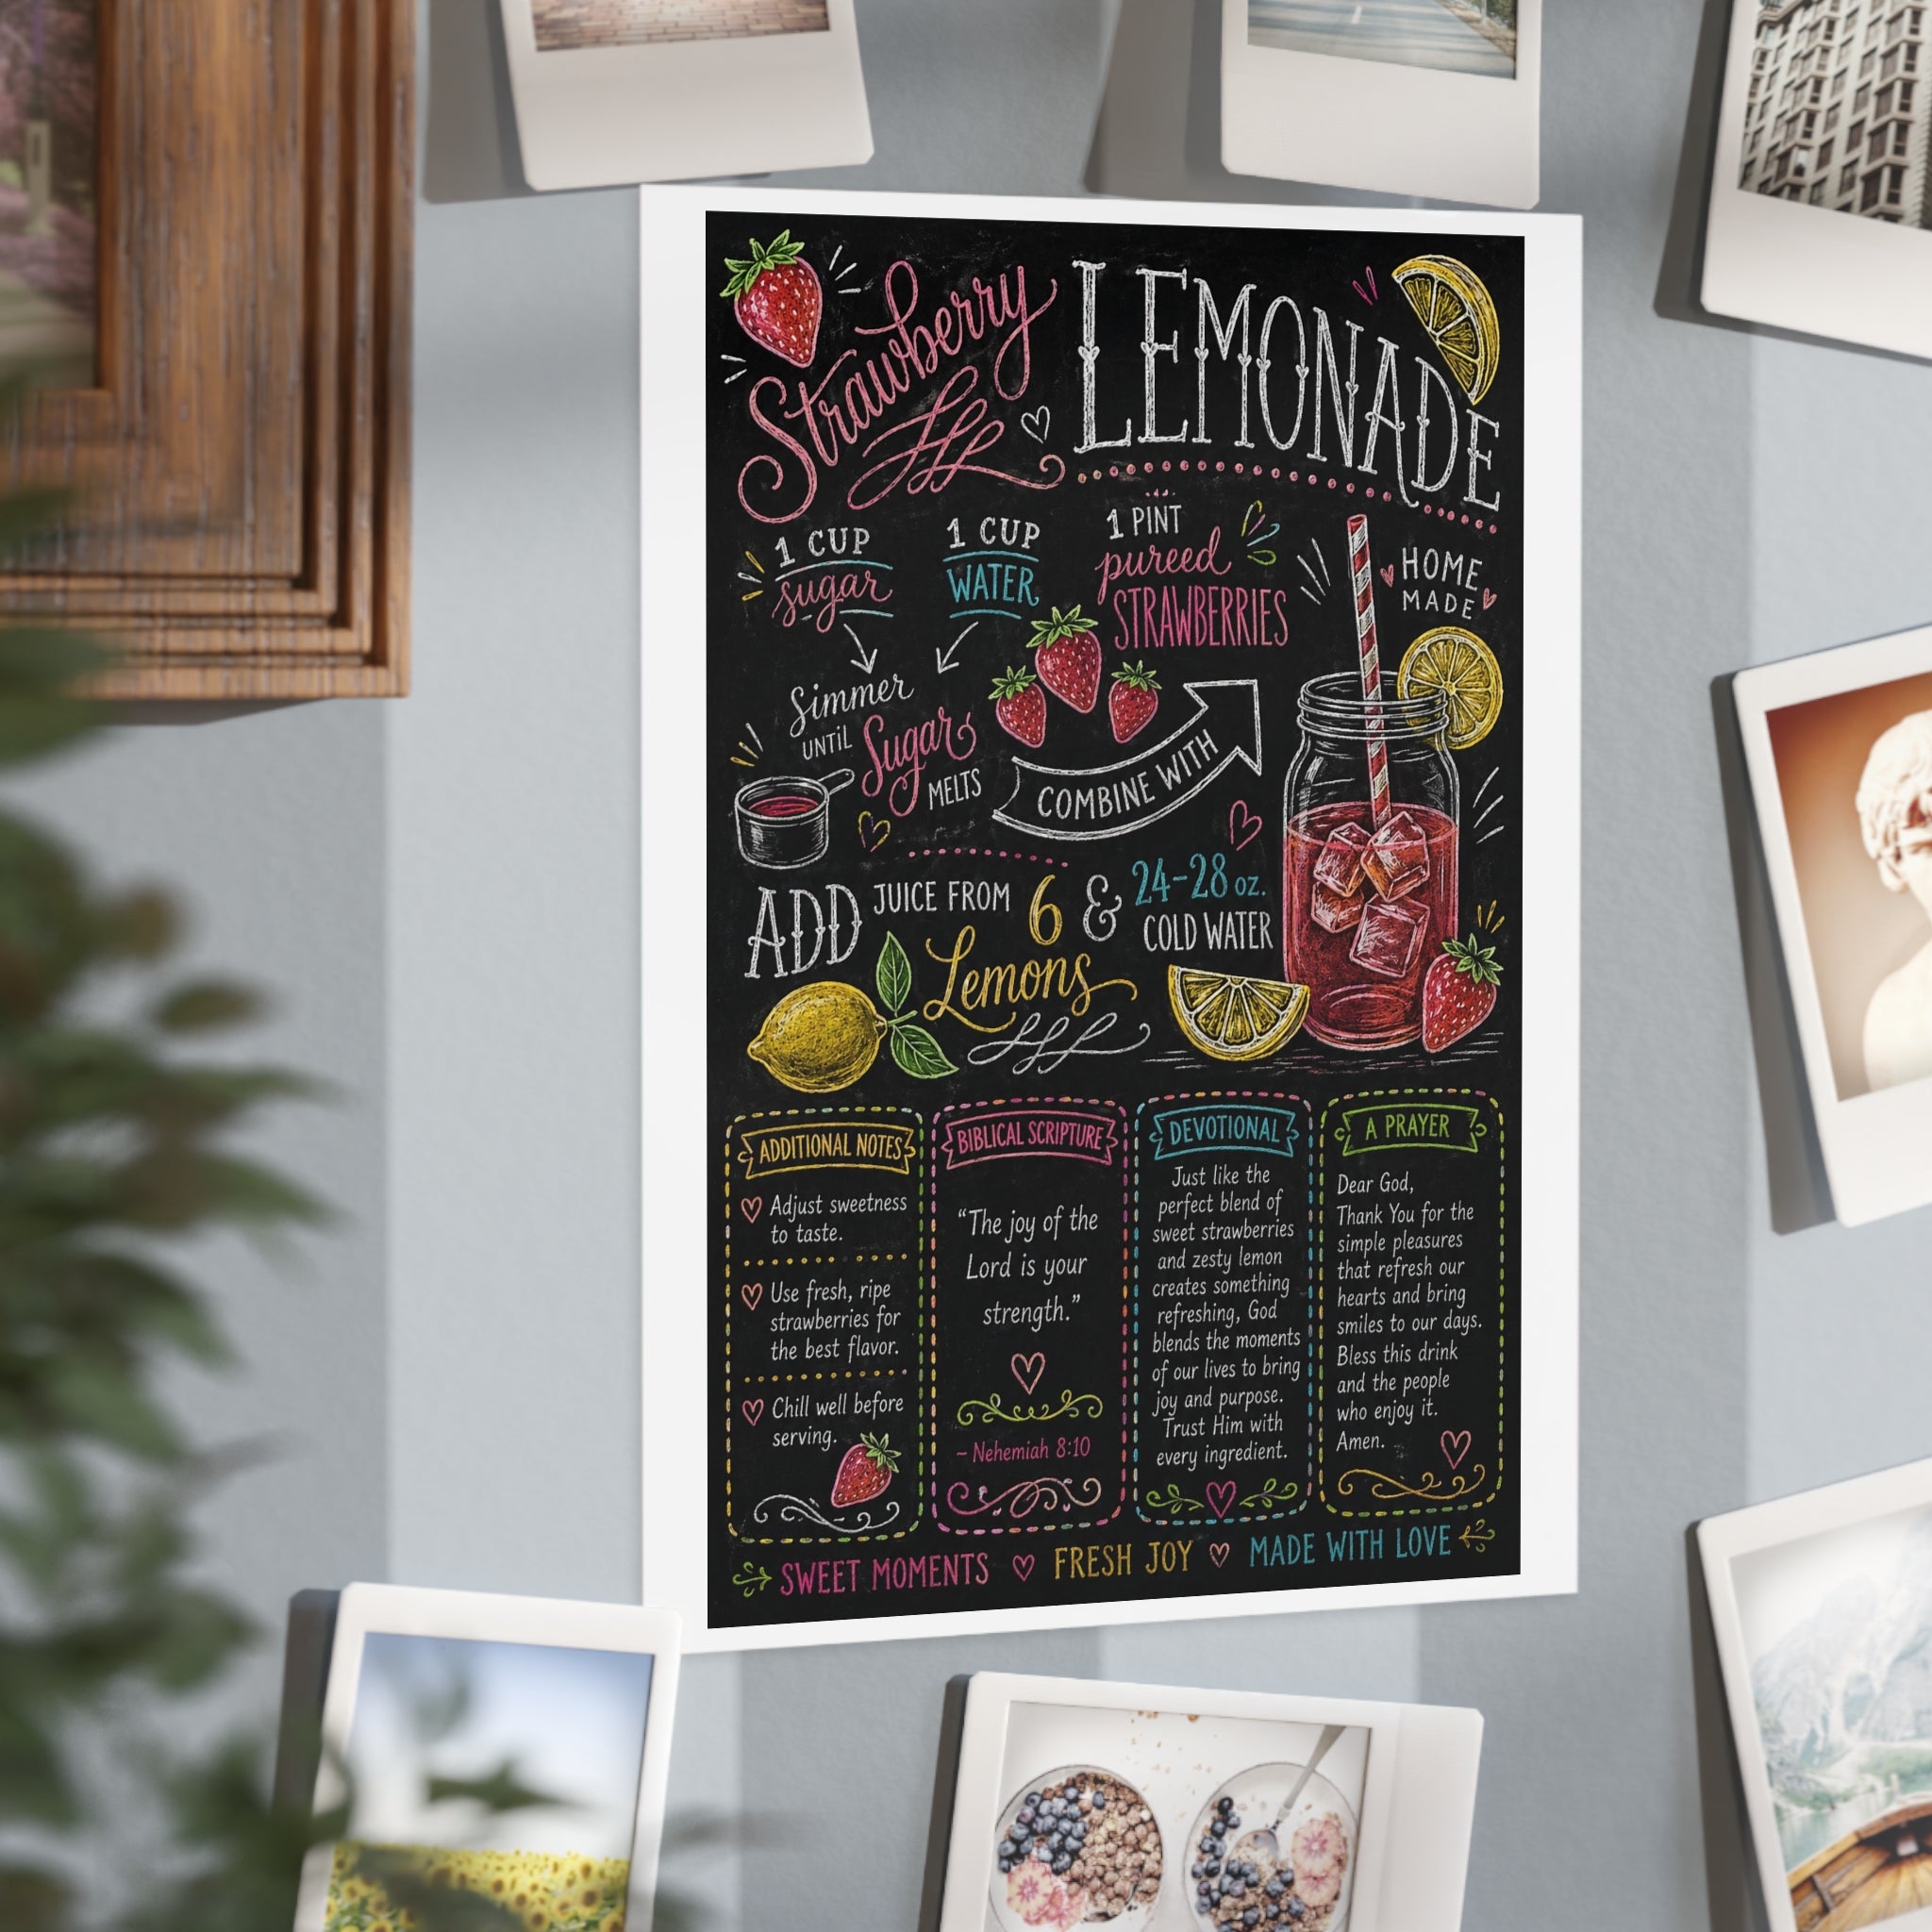 Strawberry LEMONADE
1 CUP
sugar
1 CUP
WATER
1 PINT
pureed
STRAWBERRIES
HOME
MADE
Simmer
UNTIL Sugar
MELTS
COMBINE WITH
ADD JUICE FROM 6
Lemons
& 24-28 oz.
COLD WATER
ADDITIONAL NOTES
Adjust sweetness
to taste.
Use fresh, ripe
strawberries for
the best flavor.
Chill well before
serving.
BIBLICAL SCRIPTURE
"The joy of the
Lord is your
strength."
~ Nehemiah 8:10
DEVOTIONAL
Just like the
perfect blend of
sweet strawberries
and zesty lemon
creates something
refreshing, God
blends the moments
of our lives to bring
joy and purpose.
Trust Him with
every ingredient.
A PRAYER
Dear God,
Thank You for the
simple pleasures
that refresh our
hearts and bring
smiles to our days.
Bless this drink
and the people
who enjoy it.
Amen.
SWEET MOMENTS FRESH JOY MADE WITH LOVE